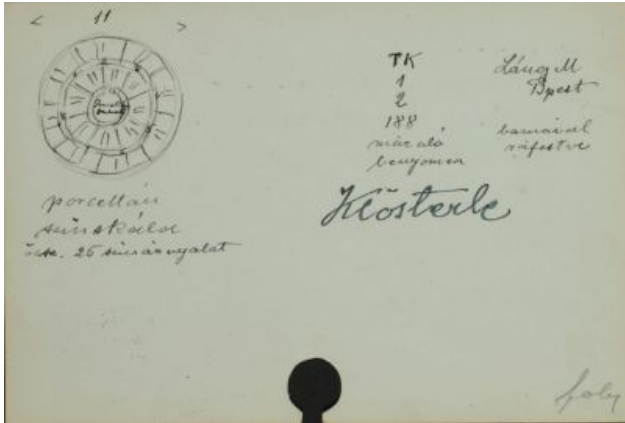 < 11 >
TK
1
2
188
máz alá
benyomva
Láng M
Bpest
barnával
ráfestve
porcellán
színskála
össz. 26 színárnyalat
Klösterle